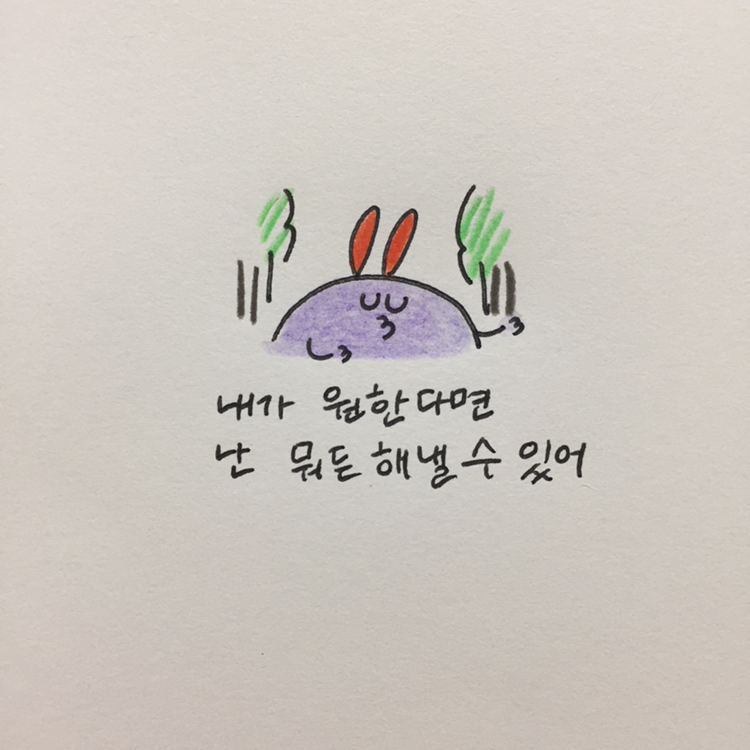 내가 원한다면
난 뭐든 해낼 수 있어